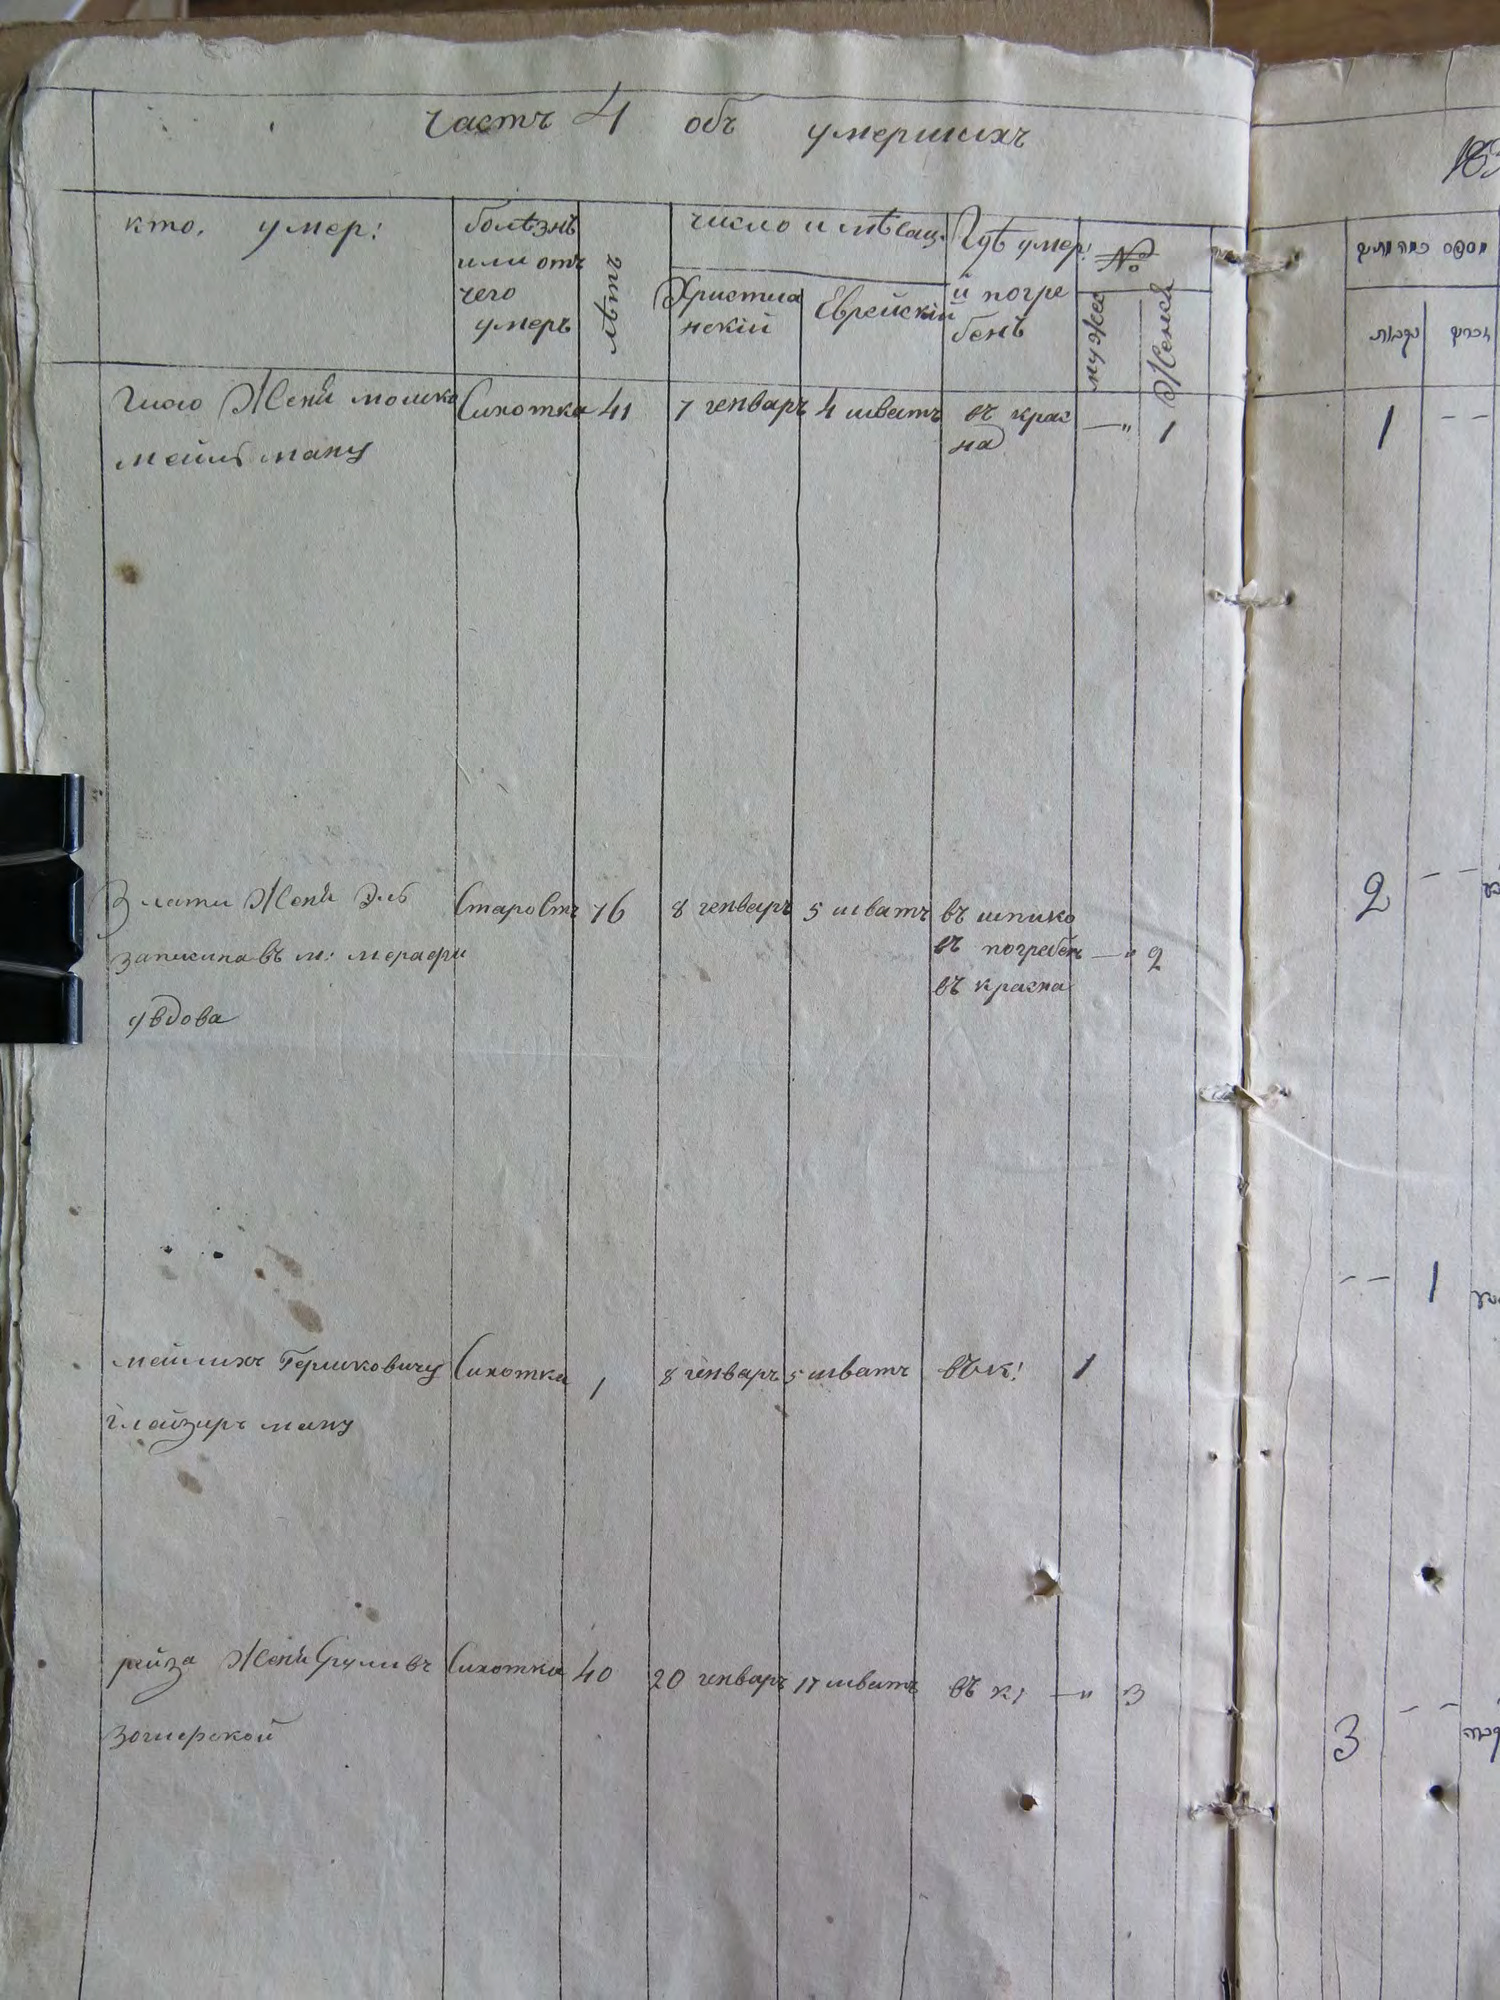 частъ 4 объ умершихъ
кто. умер:
болѣзнъ
или отъ
чего
умеръ
лѣтъ
число и мѣсац.
Христиа
нскій
Еврейскій
Гдѣ умер:
й погре
бенъ
№
мужес
Женск
Жени мошка
мейлъ ману
Сихотка
41
7 генваръ
4 шватъ
въ крас
на
—„
1
Злати Жени
въ м:
увдова
Старостъ
76
8 генваръ
5 шватъ
въ шпико
въ погребен
въ красна
—„
2
мейлихъ Гершковичу
глайзиръ ману
Сихотка
1
8 генваръ
5 шватъ
въ к:
1
рейза Жени Сруливъ
Сихотка
40
20 генваръ
17 шватъ
въ к:
—„
3
183
נקבות
1
--
2
--
--
1
3
--